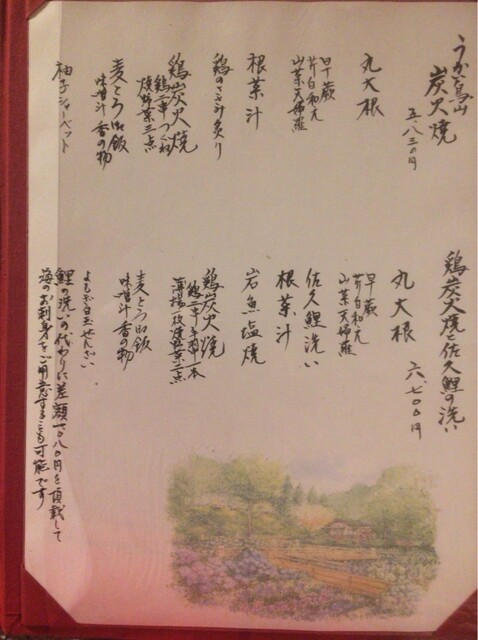 うかい鳥山
炭火焼
五、八三〇円
丸大根
早蕨
芹白和え
山菜天婦羅
根菜汁
鶏のささみ炙り
鶏炭火焼
焼野菜三点
麦とろ御飯
味噌汁 香の物
柚子シャーベット
鶏炭火焼と佐久鯉の洗い
六、七〇〇円
丸大根
早蕨
芹白和え
山菜天婦羅
佐久鯉洗い
根菜汁
岩魚塩焼
鶏炭火焼
麦とろ御飯
味噌汁 香の物
よもぎ白玉ぜんざい
鯉の洗いの代わりに差額一〇八〇円を頂戴して
海のお刺身をご用意することも可能です